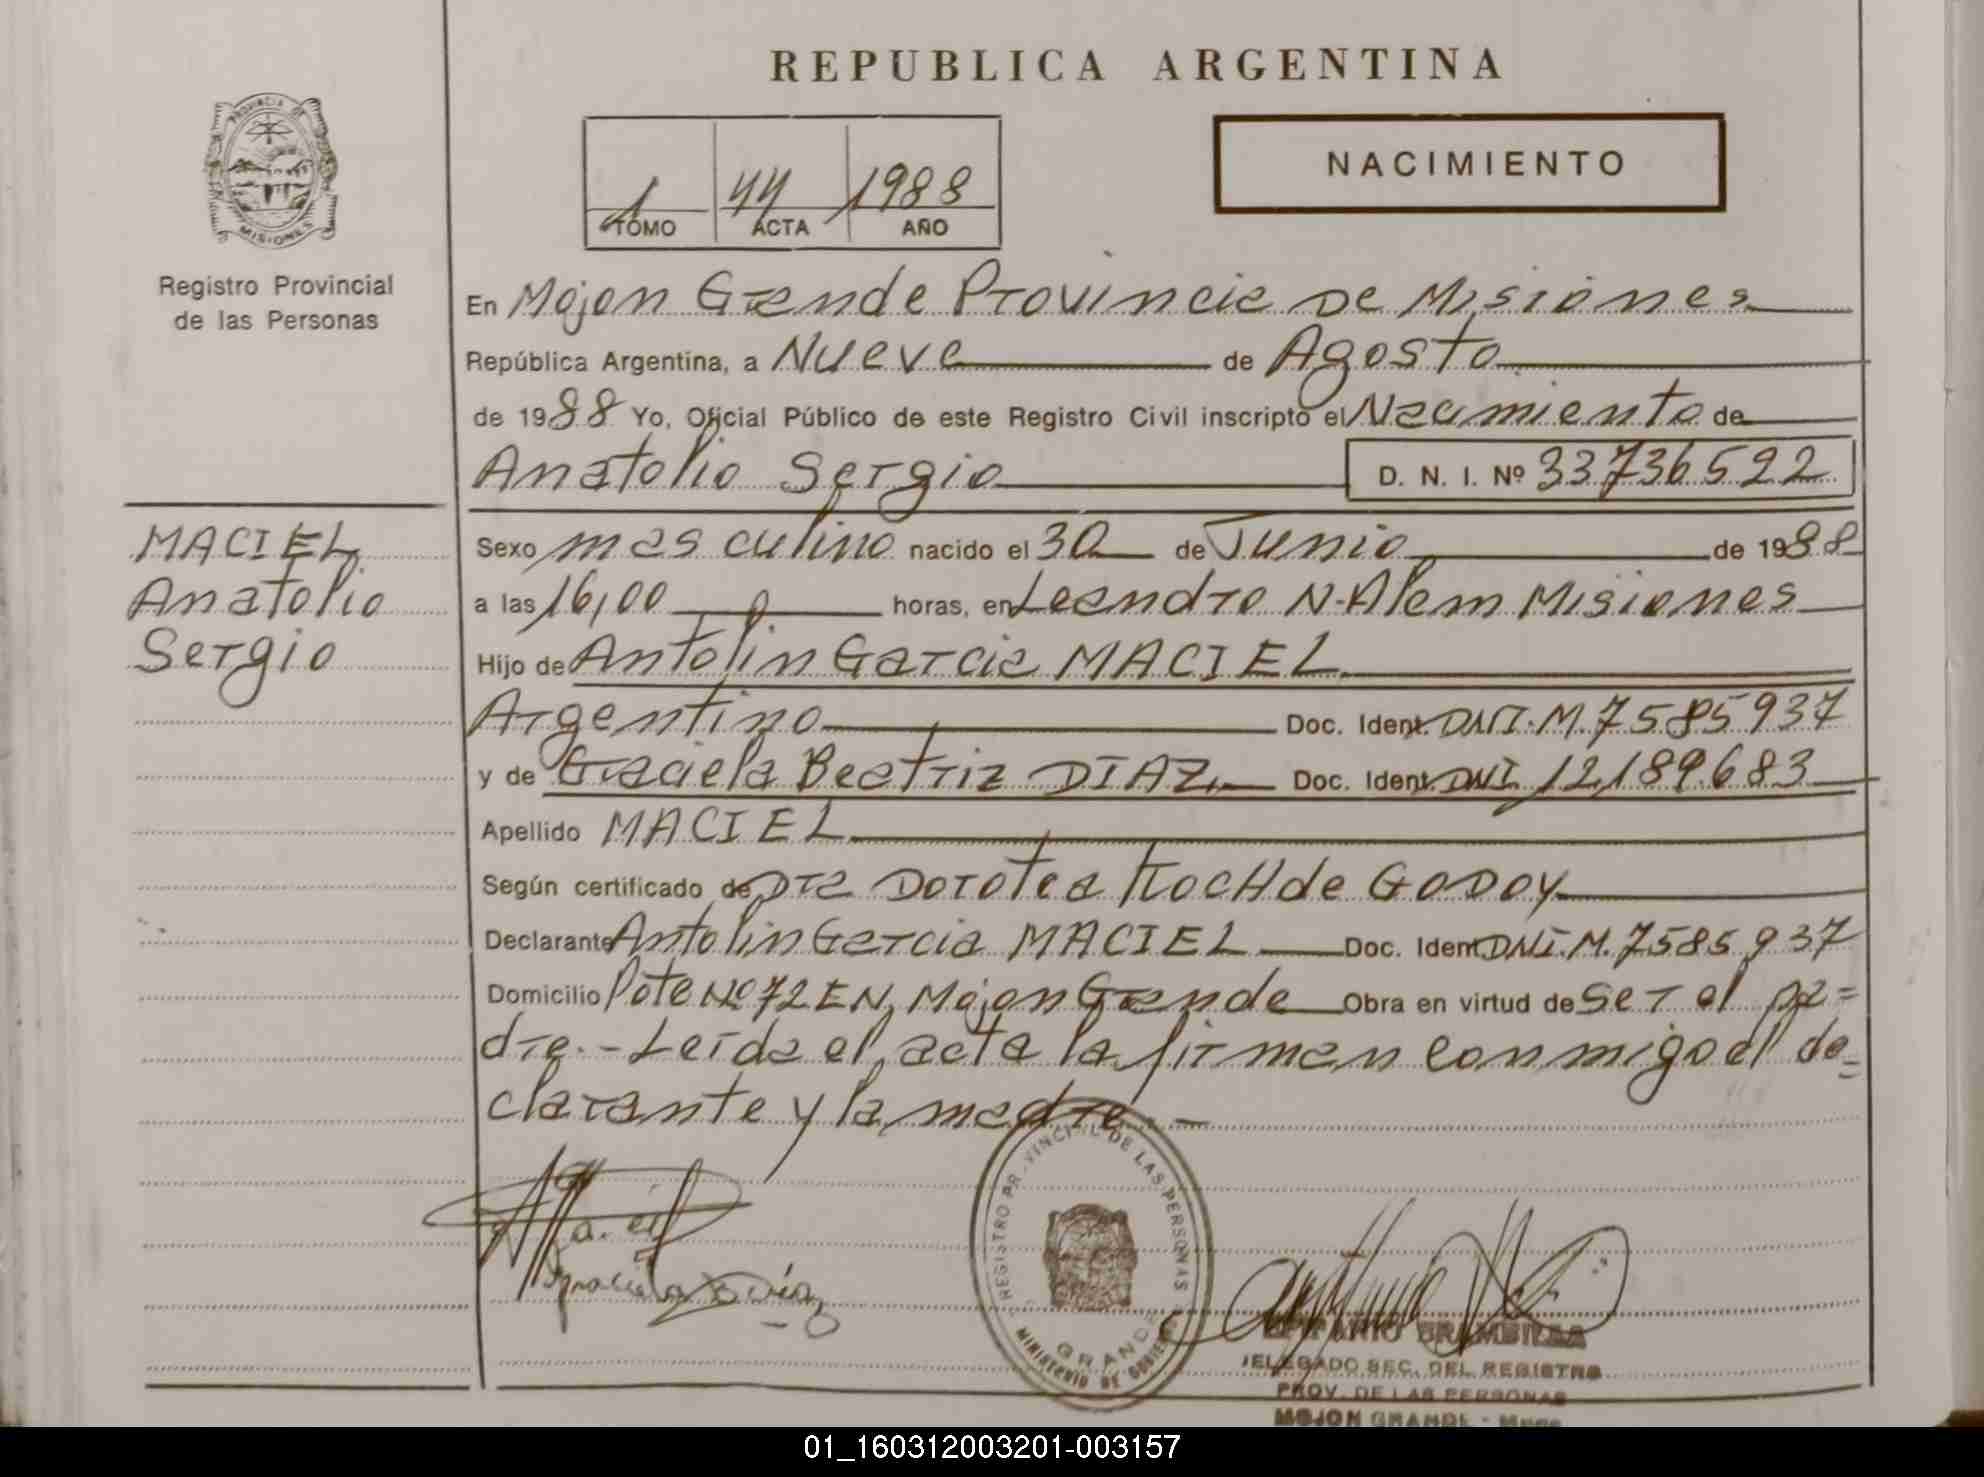 REPUBLICA ARGENTINA
PROVINCIA DE
MISIONES
Registro Provincial
de las Personas
1 44 1988
TOMO ACTA AÑO
NACIMIENTO
En Mojon Grande Provincia De Misiones
República Argentina, a Nueve de Agosto
de 1988 Yo, Oficial Público de este Registro Civil inscripto el Nacimiento de
Anatolio Sergio D. N. I. Nº 33736522
MACIEL
Anatolio
Sergio
Sexo masculino nacido el 30 de Junio de 1988
a las 16,00 horas, en Leandro N. Alem Misiones
Hijo de Antolin Garcia MACIEL
Argentino Doc. Ident. DNI. M. 7585937
y de Graciela Beatriz DIAZ Doc. Ident. DNI 12.189.683
Apellido MACIEL
Según certificado de Dra Dorotea KocH de GODOY
Declarante Antolin Garcia MACIEL Doc. Ident DNI. M. 7585937
Domicilio Pote Nº 72 EN Mojon Grande Obra en virtud de ser el pa=
dre.- Leida el acta la firman conmigo el de=
clarante y la madre.-
Graciela Díaz
REGISTRO PROVINCIAL DE LAS PERSONAS
GRANDE
MINISTERIO DE GOBIERNO
BRAMBILLA
DELEGADO SEC. DEL REGISTRO
PROV. DE LAS PERSONAS
MOJON GRANDE - Mnes
01_160312003201-003157